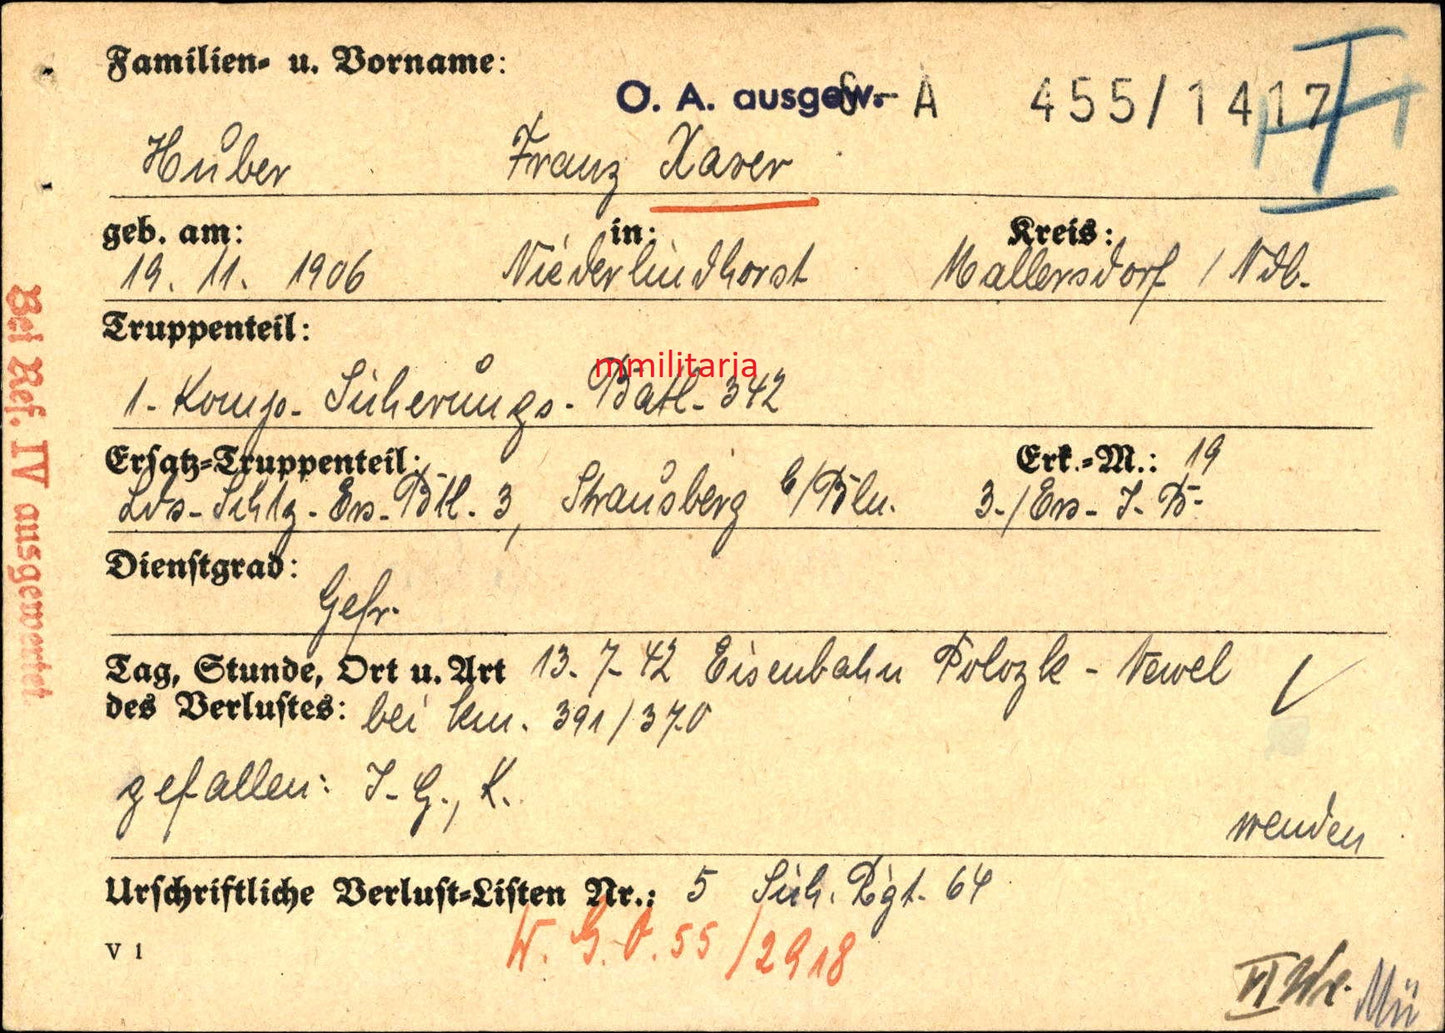 Familien- u. Vorname:
O. A. ausgew. - A 455/1417
Huber Franz Xaver
geb. am: in: Kreis:
19. 11. 1906 Niederlindhorst Mallersdorf / Ndb.
Truppenteil:
mmilitaria
1. Komp. Sicherungs-Batl. 342
Ersatz-Truppenteil: Erk.-M.: 19
Lds-Schtz-Ers.Btl. 3, Strausberg b/Bln. 3./Ers-I.B.
Dienstgrad:
Gefr.
Tag, Stunde, Ort u. Art 13. 7. 42 Eisenbahn Polozk - Newel
des Verlustes: bei km. 391/370
gefallen: I-G., K.
wenden
Urschriftliche Verlust-Listen Nr.: 5 Sich. Rgt. 64
W. G. O. 55/2918
V 1
VI
Mü
Bei Ref. IV ausgewertet